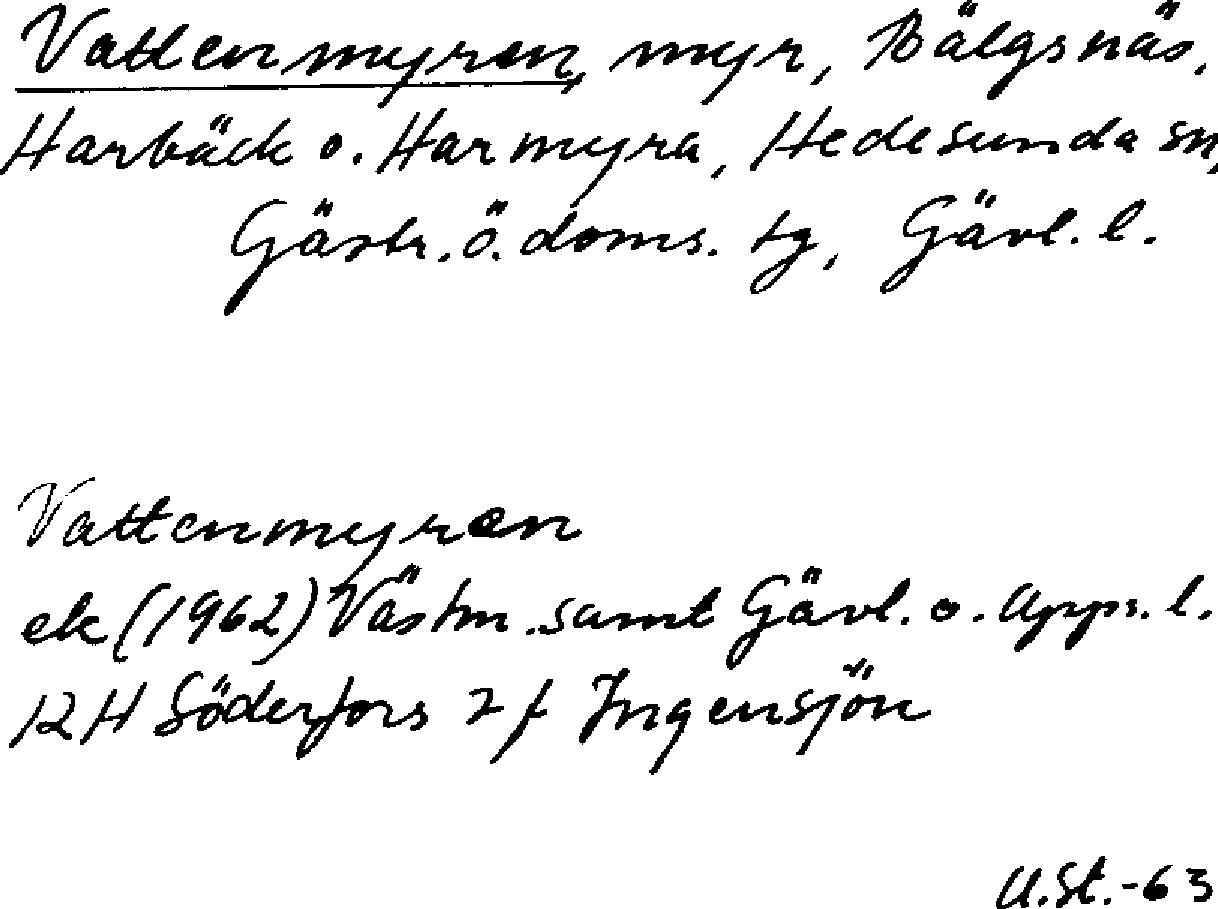 Vattenmyren, myr, Bälgsnäs,
Harbäck o. Harmyra, Hedesunda sn,
Gästr. ö. doms. tg, Gävl. l.
Vattenmyren
ek (1962) Västm. samt Gävl. o. Upps. l.
12H Söderfors 7 f Ingensjön
U.St.-63